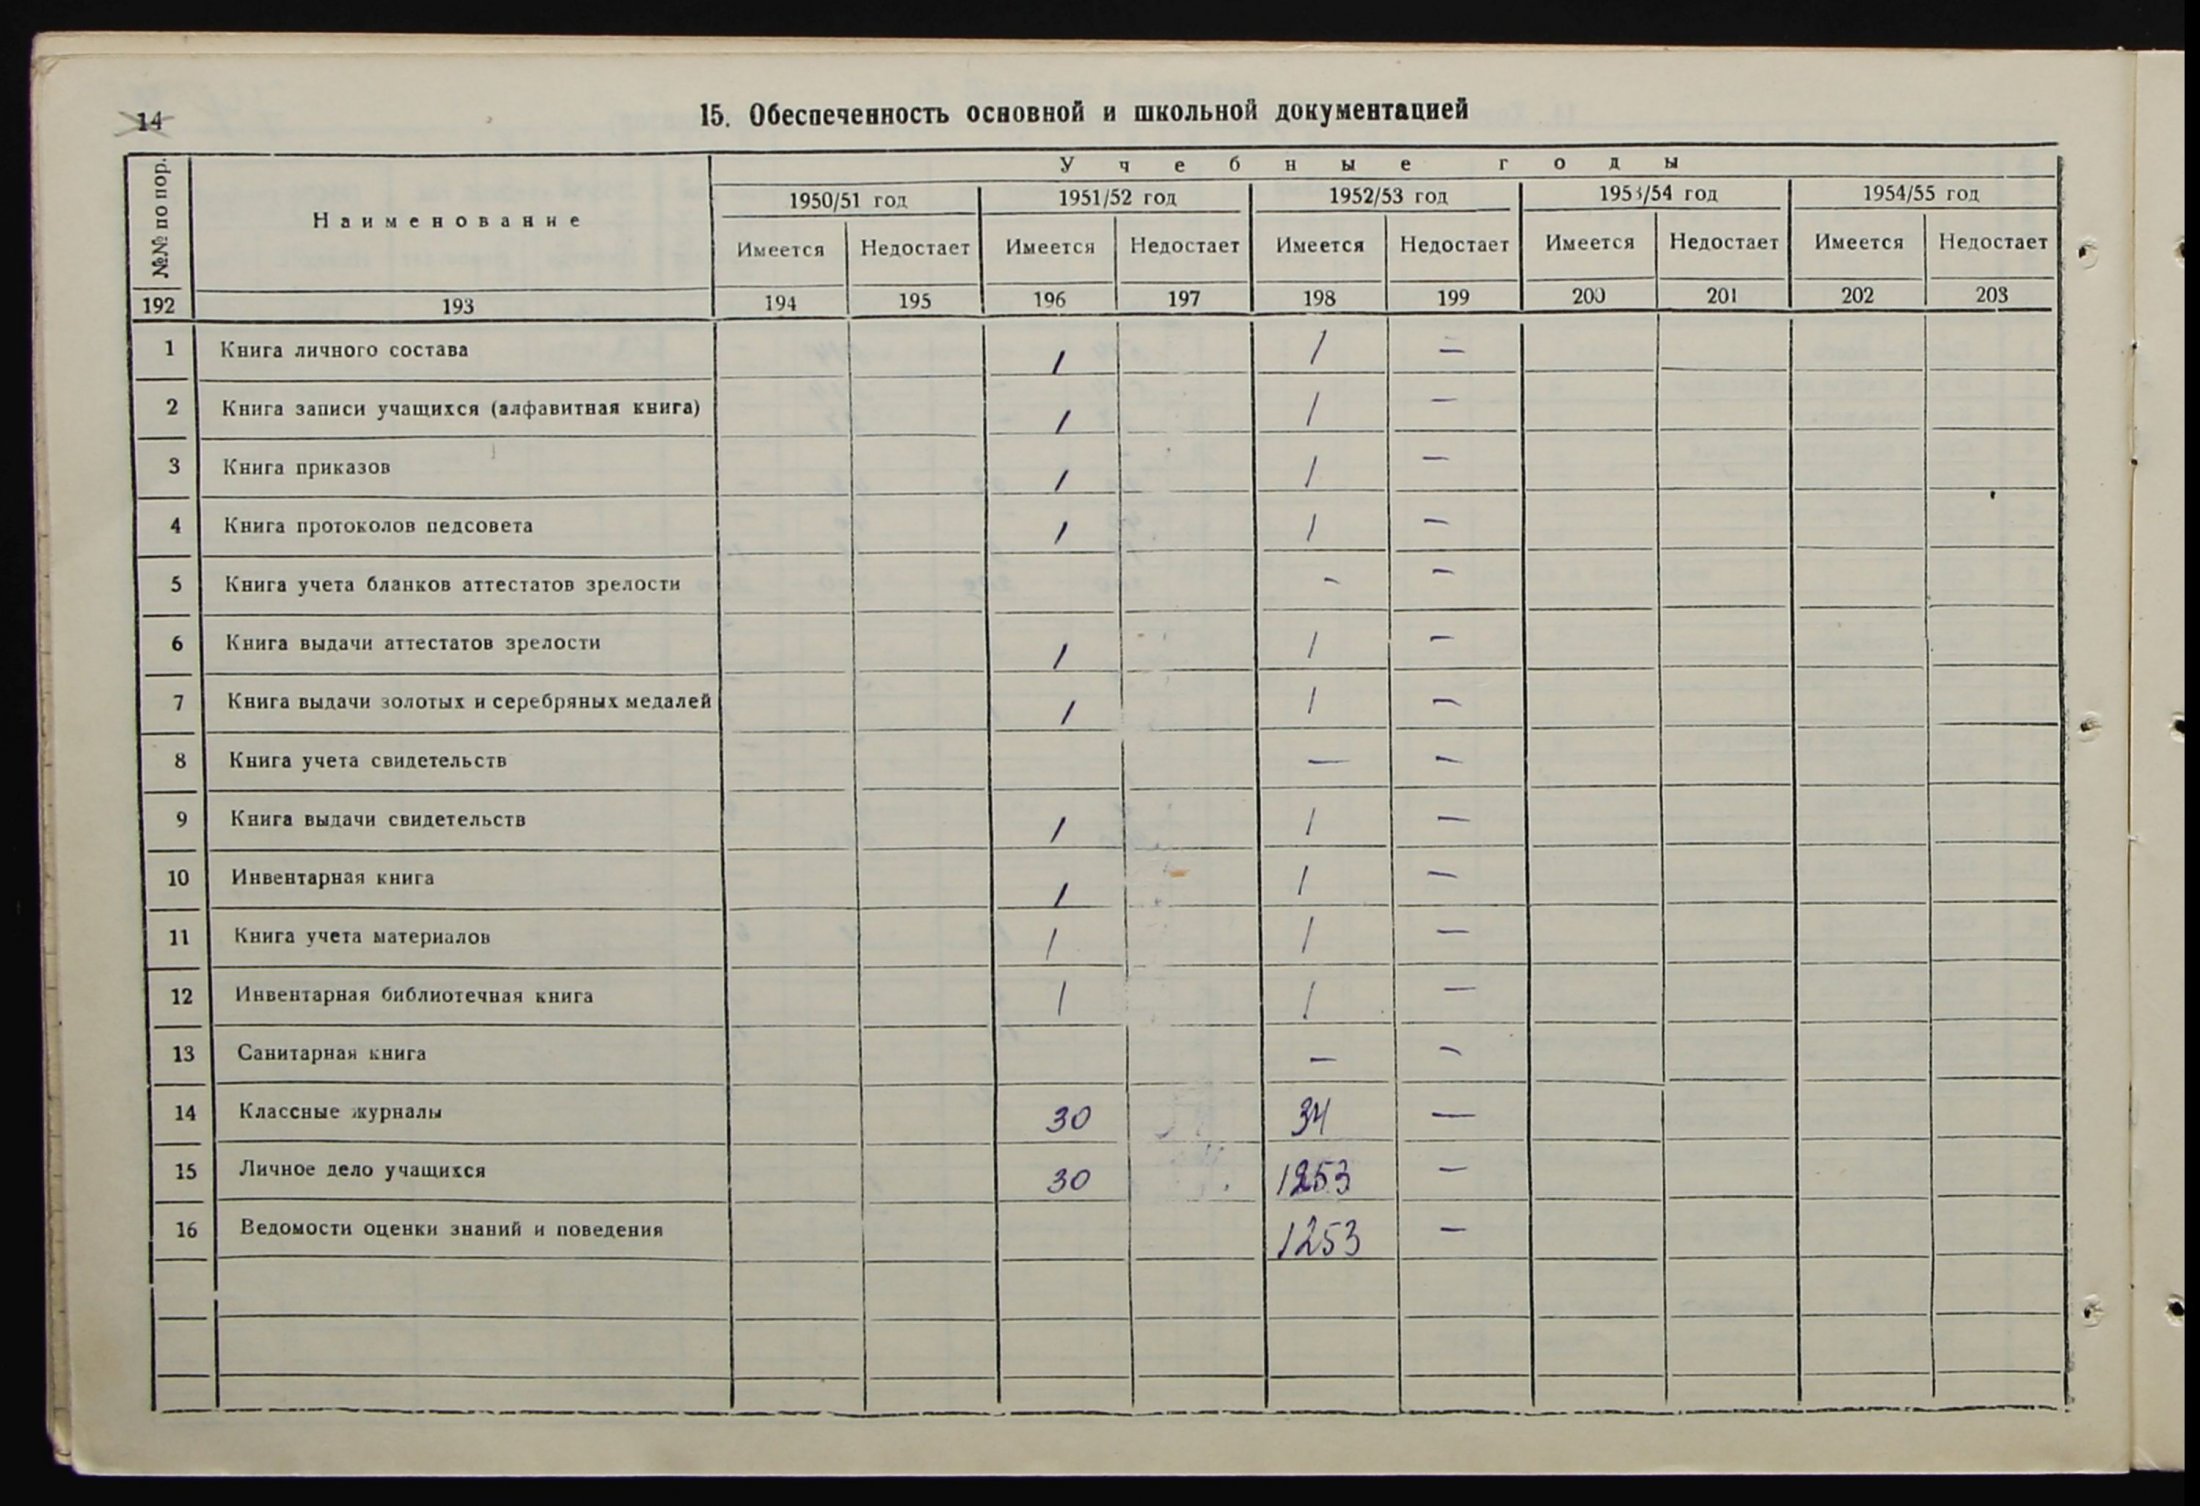 14
15. Обеспеченность основной и школьной документацией
№№ по пор.
Наименование
Учебные годы
1950/51 год 1951/52 год 1952/53 год 1953/54 год 1954/55 год
Имеется Недостает Имеется Недостает Имеется Недостает Имеется Недостает Имеется Недостает
192 193 194 195 196 197 198 199 200 201 202 203
1 Книга личного состава 1 1 —
2 Книга записи учащихся (алфавитная книга) 1 1 —
3 Книга приказов 1 1 —
4 Книга протоколов педсовета 1 1 —
5 Книга учета бланков аттестатов зрелости - —
6 Книга выдачи аттестатов зрелости 1 1 —
7 Книга выдачи золотых и серебряных медалей 1 1 —
8 Книга учета свидетельств — —
9 Книга выдачи свидетельств 1 1 —
10 Инвентарная книга 1 1 —
11 Книга учета материалов 1 1 —
12 Инвентарная библиотечная книга 1 1 —
13 Санитарная книга — —
14 Классные журналы 30 34 —
15 Личное дело учащихся 30 1253 —
16 Ведомости оценки знаний и поведения 1253 —